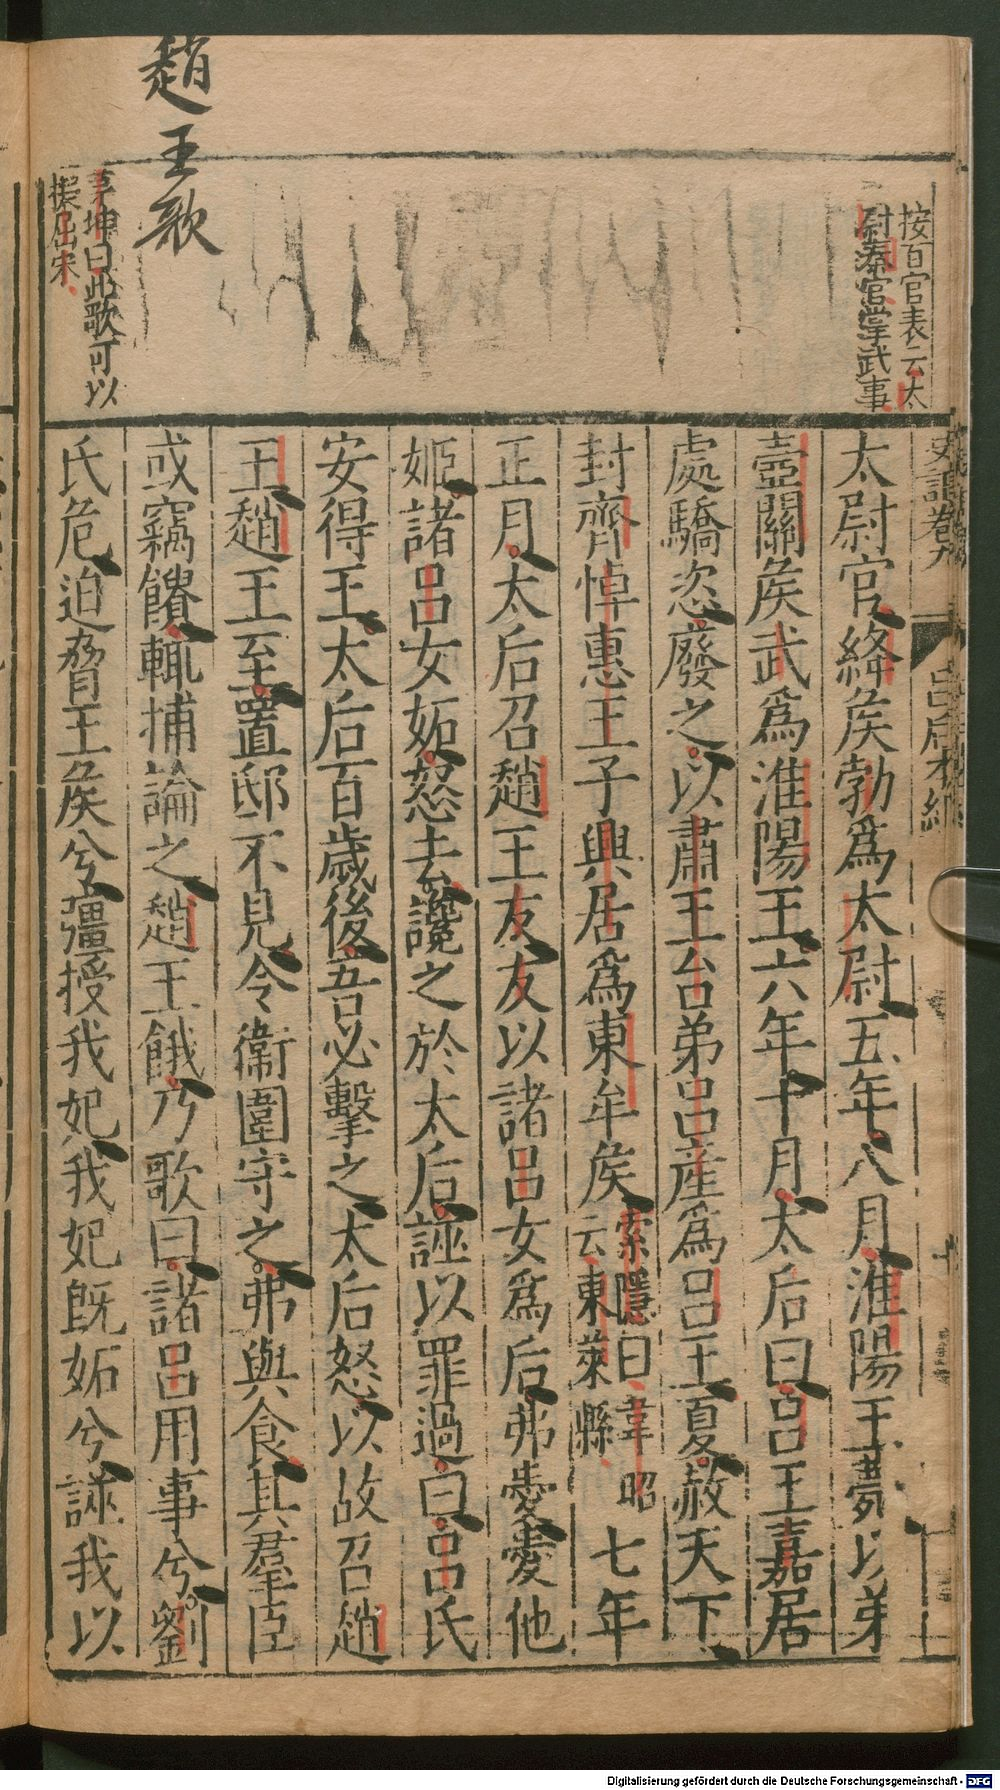 趙王歌
按百官表云太
尉秦官掌武事
坤曰此歌可以
振屈宋
太尉官絳侯勃爲太尉五年八月淮陽王薨以弟
壺關侯武爲淮陽王六年十月太后曰呂王嘉居
處驕恣廢之以肅王台弟呂産爲呂王夏赦天下
封齊悼惠王子興居爲東牟侯索隱曰韋昭云東萊縣七年
正月太后召趙王友友以諸呂女爲后弗愛愛他
姬諸呂女妬怒去讒之於太后誣以罪過曰呂氏
安得王太后百歲後吾必擊之太后怒以故召趙
王趙王至置邸不見令衞圍守之弗與食其羣臣
或竊饋輒捕論之趙王餓乃歌曰諸呂用事兮劉
氏危迫脅王侯兮彊授我妃我妃既妬兮誣我以
Digitalisierung gefördert durch die Deutsche Forschungsgemeinschaft - DFG